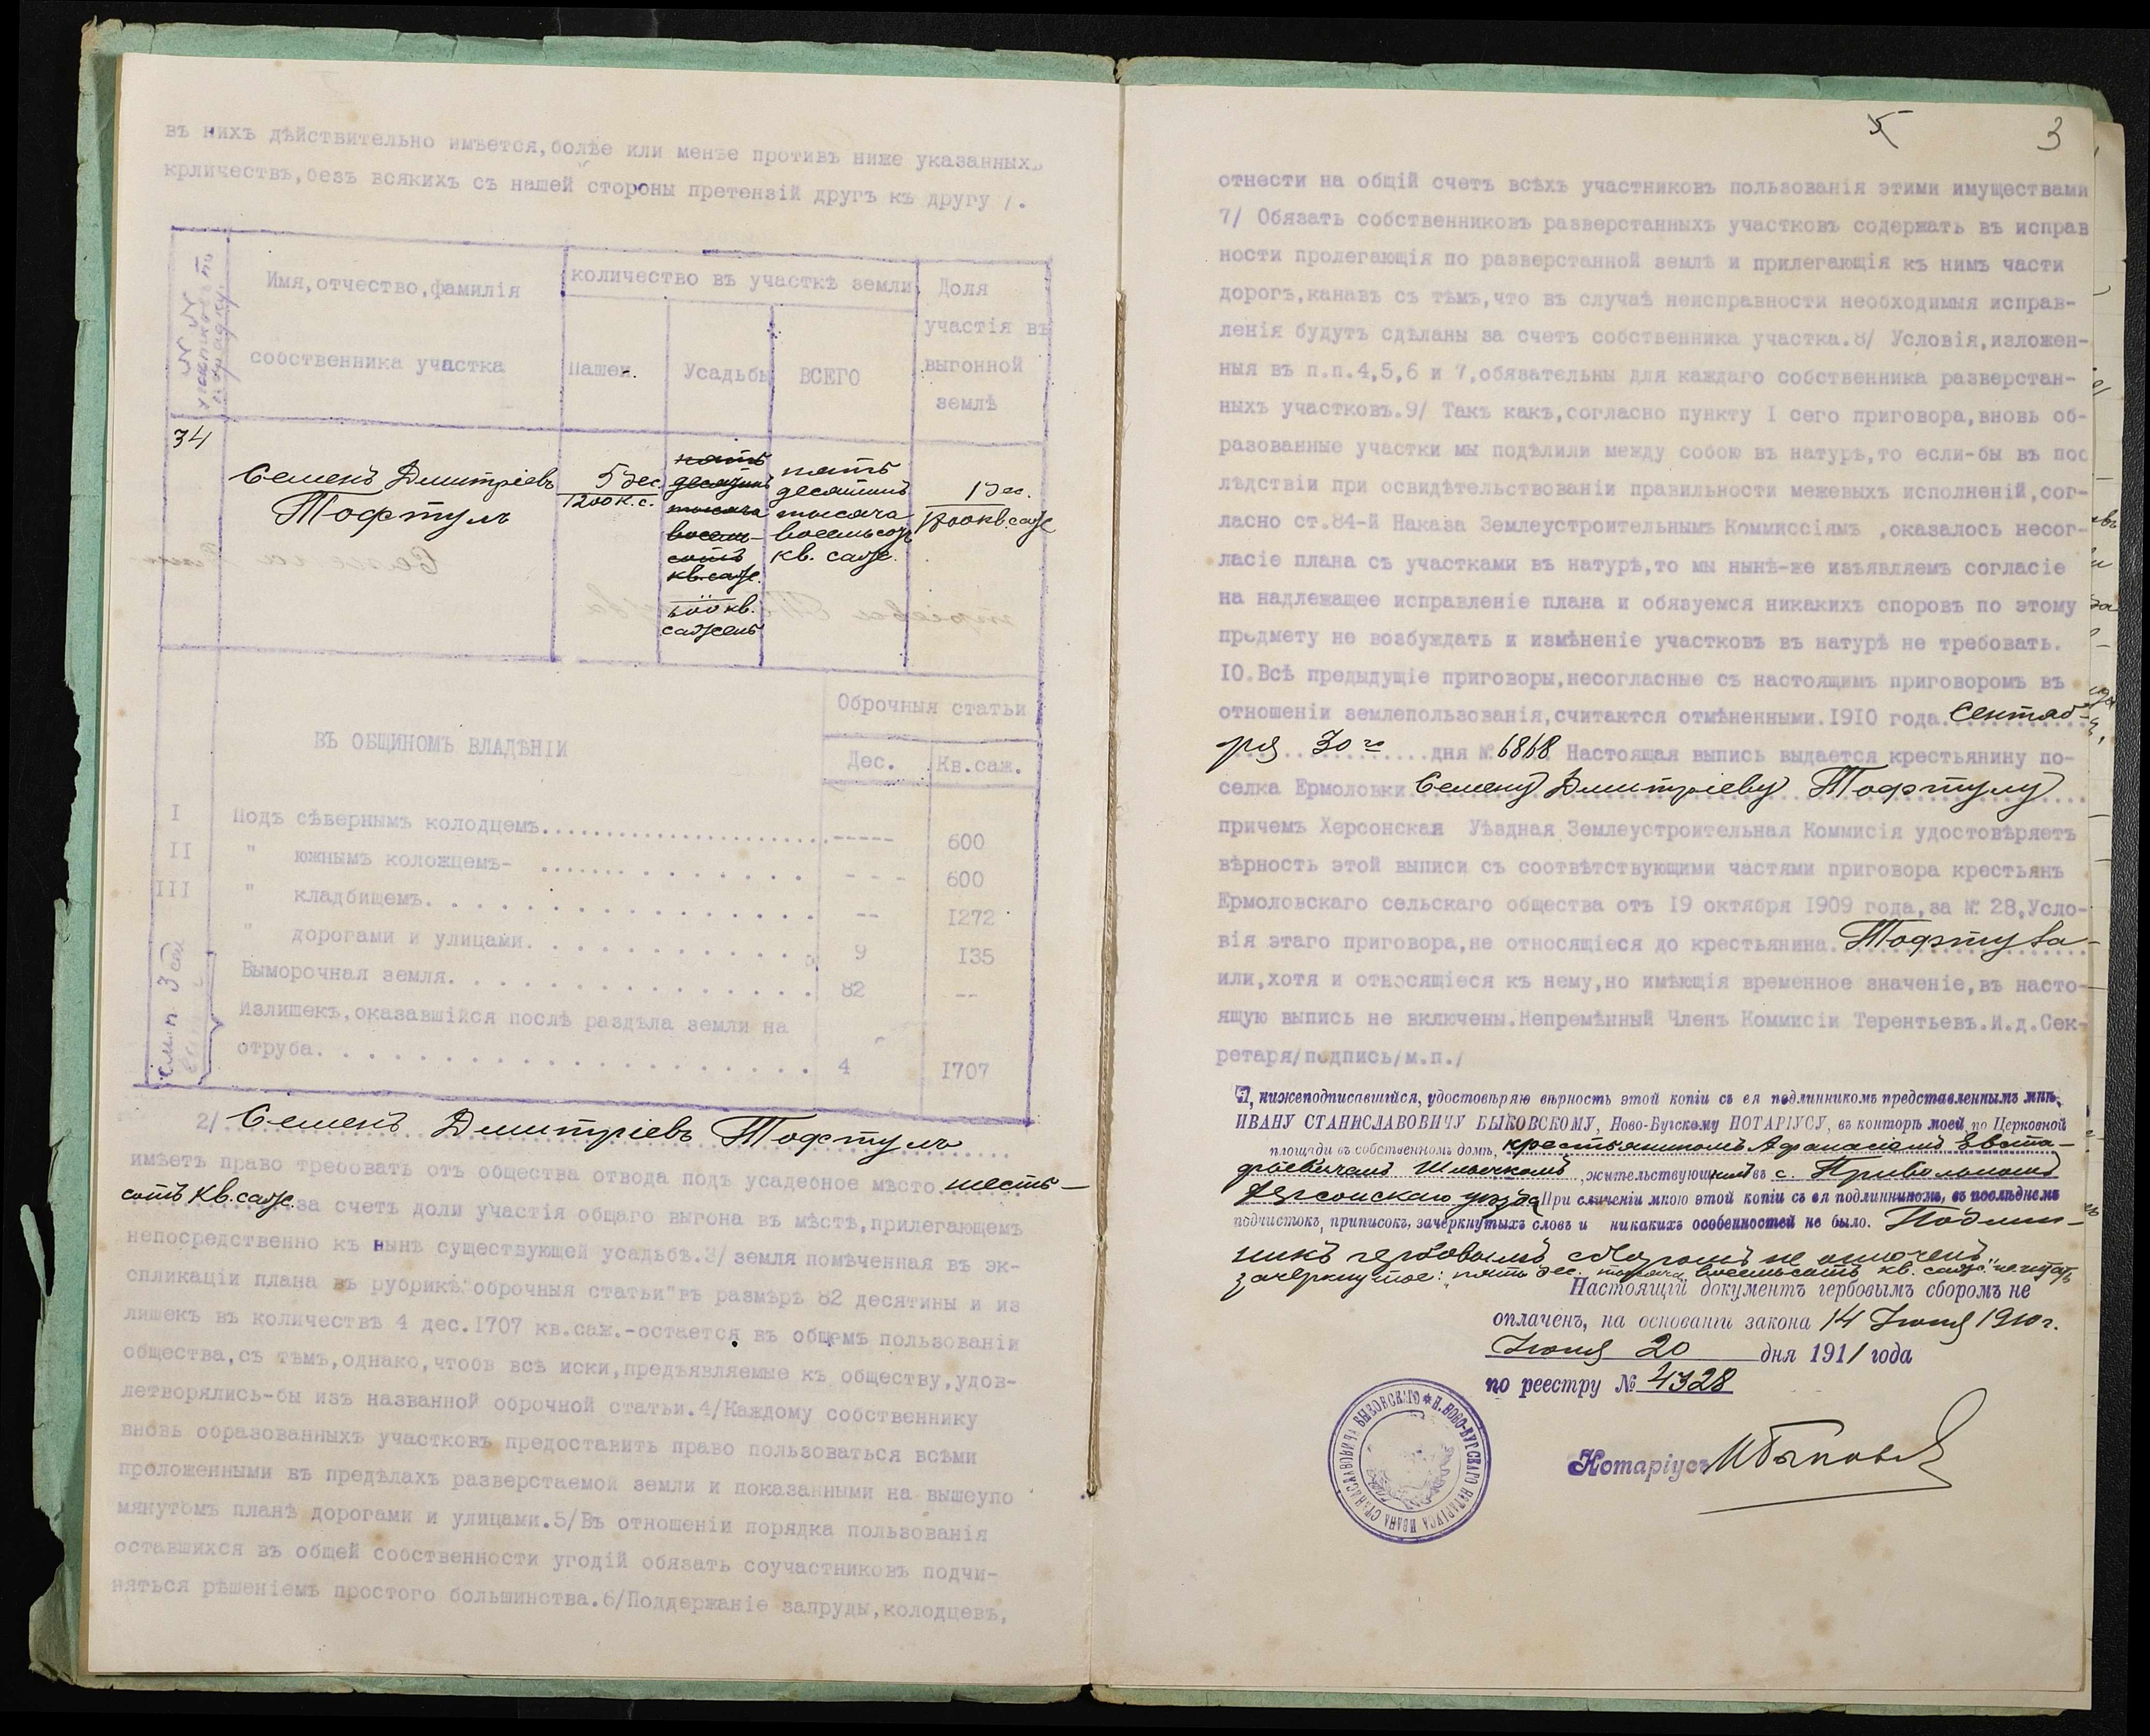 въ нихъ дѣйствительно имѣется,болѣе или менѣе противъ ниже указанныхъ
крличествъ,безъ всякихъ съ нашей стороны претензій другъ къ другу /.
№ №
участковъ по
порядку.
Имя,отчество,фамилія
собственника участка
количество въ участкѣ земли
Пашен.
Усадьбы
ВСЕГО
Доля
участія въ
выгонной
землѣ
34
Семенъ Дмитріевъ
Тофтулъ
5 дес.
1200 к.с.
пять
десятинъ
тысяча
восемь-
сотъ
кв. саж.
600 кв.
сажень
пять
десятинъ
тысяча
восемьсотъ
кв. саж.
1 дес.
1700 кв. саж
ВЪ ОБЩИНОМЪ ВЛАДѢНІИ
Оброчныя статьи
Дес.
Кв.саж.
I Подъ сѣвернымъ колодцемъ.......................----- 600
II " южнымъ коложцемъ- .............. - - - 600
III " кладбищемъ................ -- 1272
" дорогами и улицами............ 9 135
Выморочная земля................ 82 --
Излишекъ,оказавшійся послѣ раздѣла земли на
отруба..................... 4 1707
см. п. 3
2/ Семенъ Дмитріевъ Тофтулъ
имѣетъ право требовать отъ общества отвода подъ усадебное мѣсто шесть-
сотъ кв. саж. за счетъ доли участія общаго выгона въ мѣстѣ,прилегающемъ
непосредственно къ нынѣ существующей усадьбѣ.3/ земля помѣченная въ эк-
спликаціи плана въ рубрикѣ"оброчныя статьи"въ размѣрѣ 82 десятины и из
лишекъ въ количествѣ 4 дес.1707 кв.саж.-остается въ общемъ пользованіи
общества,съ тѣмъ,однако,чтобъ всѣ иски,предъявляемые къ обществу,удов-
летворялись-бы изъ названной оброчной статьи.4/Каждому собственнику
вновь образованныхъ участковъ предоставить право пользоваться всѣми
проложенными въ предѣлахъ разверстаемой земли и показанными на вышеупо
мянутомъ планѣ дорогами и улицами.5/Въ отношеніи порядка пользованія
оставшихся въ общей собственности угодій обязать соучастниковъ подчи-
няться рѣшеніемъ простого большинства.6/Поддержаніе запруды,колодцевъ,
5
3
отнести на общій счетъ всѣхъ участниковъ пользованія этими имуществами
7/ Обязать собственниковъ разверстанныхъ участковъ содержать въ исправ
ности пролегающія по разверстанной землѣ и прилегающія къ нимъ части
дорогъ,канавъ съ тѣмъ,что въ случаѣ неисправности необходимыя исправ-
ленія будутъ сдѣланы за счетъ собственника участка.8/ Условія,изложен-
ныя въ п.п.4,5,6 и 7,обязательны для каждаго собственника разверстан-
ныхъ участковъ.9/ Такъ какъ,согласно пункту I сего приговора,вновь об-
разованные участки мы подѣлили между собою въ натурѣ,то если-бы въ пос
лѣдствіи при освидѣтельствованіи правильности межевыхъ исполненій,сог-
ласно ст.84-й Наказа Землеустроительнымъ Коммиссіямъ ,оказалось несог-
ласіе плана съ участками въ натурѣ,то мы нынѣ-же изъявляемъ согласіе
на надлежащее исправленіе плана и обязуемся никакихъ споровъ по этому
предмету не возбуждать и измѣненіе участковъ въ натурѣ не требовать.
10.Всѣ предыдущіе приговоры,несогласные съ настоящимъ приговоромъ въ
отношеніи землепользованія,считаются отмѣненными.1910 года. Сентяб-
ря 30 го дня № 6868 Настоящая выпись выдается крестьянину по-
селка Ермоловки Семену Дмитріеву Тофтулу
причемъ Херсонская Уѣздная Землеустроительная Коммисія удостовѣряетъ
вѣрность этой выписи съ соотвѣтствующими частями приговора крестьянъ
Ермоловскаго сельскаго общества отъ 19 октября 1909 года,за № 28.Усло-
вія этаго приговора,не относящіеся до крестьянина. Тофтула
или,хотя и относящіеся къ нему,но имѣющія временное значеніе,въ насто-
ящую выпись не включены.Непремѣнный Членъ Коммисіи Терентьевъ.И.д.Сек-
ретаря/подпись/м.п./
Я, нижеподписавшійся, удостовѣряю вѣрность этой копіи съ ея подлинникомъ представленнымъ мнѣ,
ИВАНУ СТАНИСЛАВОВИЧУ БЫКОВСКОМУ, Ново-Бугскому НОТАРІУСУ, въ конторѣ моей, по Церковной
площади въ собственномъ домѣ, крестьяниномъ Афанасіемъ Евста-
фіевичемъ Шлячкомъ, жительствующимъ въ с. Привольномъ
Херсонскаго уѣзда При сличеніи мною этой копіи съ ея подлинникомъ, въ послѣднемъ
подчистокъ, приписокъ, зачеркнутыхъ словъ и никакихъ особенностей не было. Подлин-
никъ гербовымъ сборомъ не оплоченъ.
зачеркнутое: „пять дес. тысяча восемьсотъ кв. саж." не читать
Настоящій документъ гербовымъ сборомъ не
оплаченъ, на основаніи закона 14 Іюня 1910 г.
Іюня 20 дня 1911 года
по реестру № 4328
Нотаріусъ ИБыковскій
Н. НОВО-БУГСКАГО НОТАРІУСА ИВАНА СТАНИСЛАВОВИЧА БЫКОВСКАГО